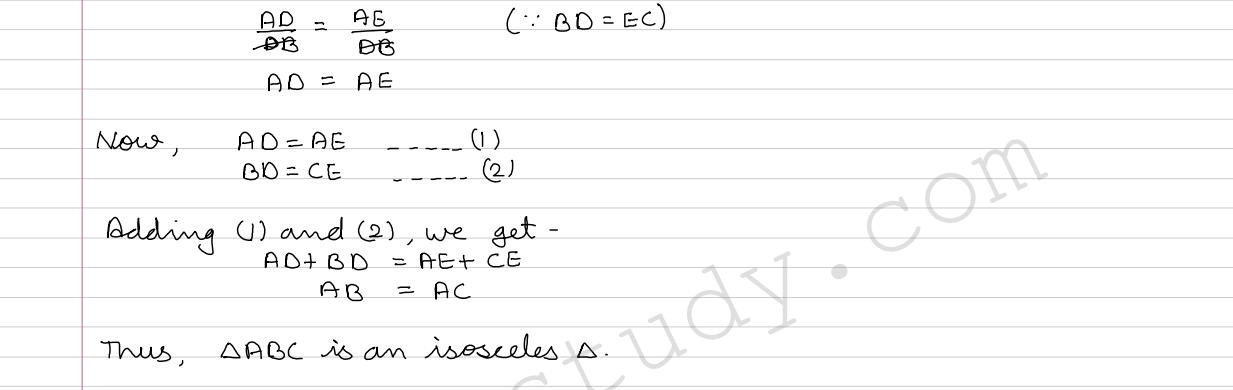 AD/DB = AE/DB (∵ BD = EC)
AD = AE
Now, AD = AE ----- (1)
BD = CE ----- (2)
Adding (1) and (2), we get -
AD + BD = AE + CE
AB = AC
Thus, △ABC is an isosceles △.
study.com